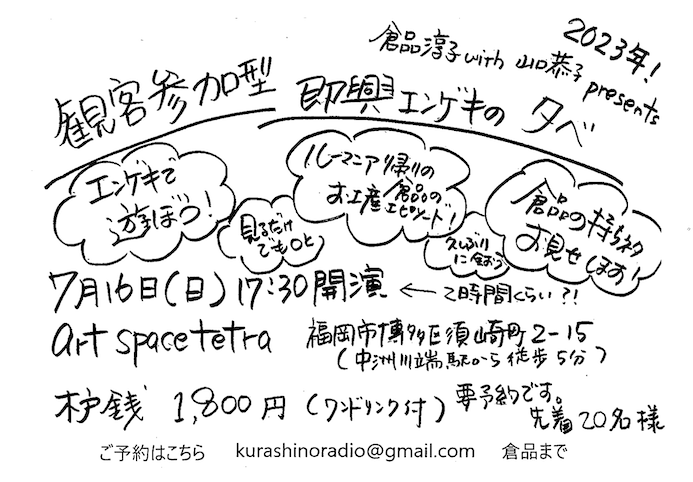 2023年！
倉品淳子with 山口恭子 presents
観客参加型 即興エンゲキの夕べ
エンゲキで
遊ぼう！
見るだけ
でもOK
ルーマニア帰りの
お土産 倉品の
エピソード！
久しぶり
に会おう
倉品の持ちネタ
お見せします！
7月16日(日)17:30開演 ← 2時間くらい?!
art space tetra 福岡市博多区須崎町2-15
(中洲川端駅から徒歩5分)
木戸銭 1,800円 (ワンドリンク付) 要予約です。
先着20名様
ご予約はこちら kurashinoradio@gmail.com 倉品まで